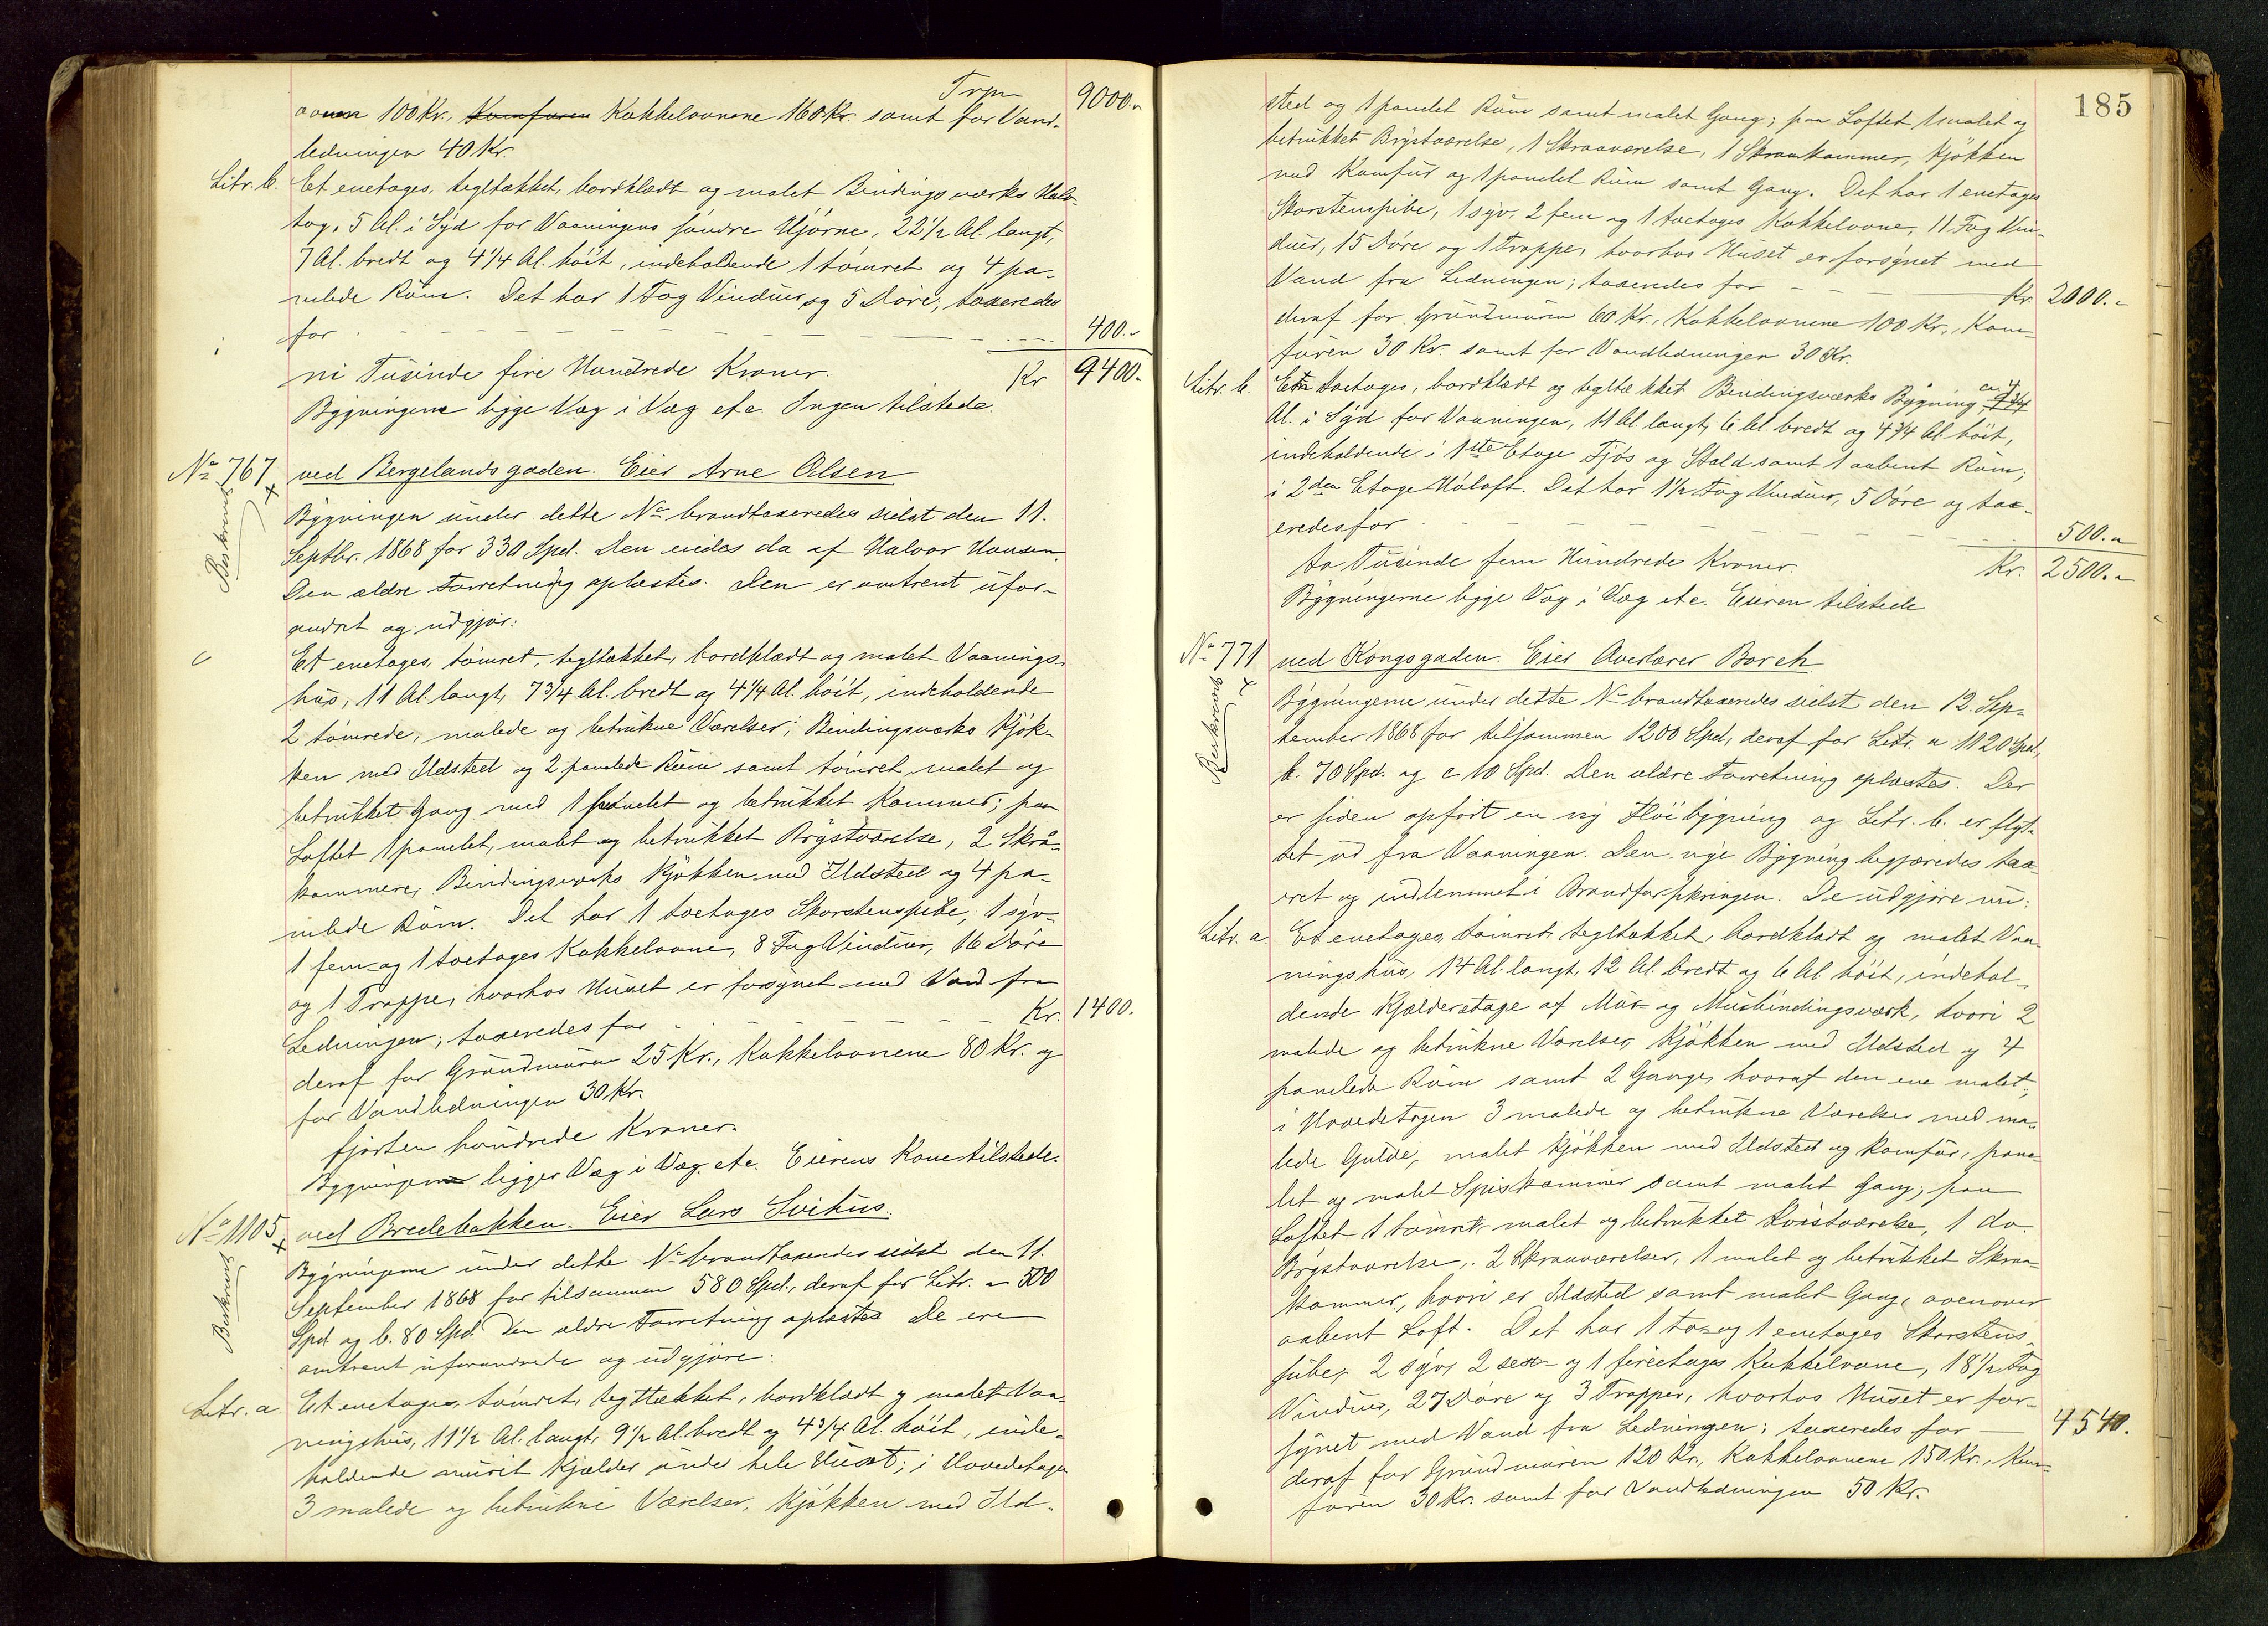 Trp 9000.-
ovnen 100 Kr., Komfuren Kakkelovnene 160 Kr. samt for Vand-
ledningen 40 Kr.
Litr. b. Et enetages, tegltækket, bordklædt og malet Bindingsværks Halv-
tag, 5 Al. i Syd for Vaaningens søndre Hjørne, 22 1/2 Al. langt,
7 Al. bredt og 4 1/4 Al. høit, indeholdende 1 tømret og 4 pa-
nelede Rum. Det har 1 Fag Vinduer og 5 Døre; taxeredes
for - - - 400.-
ni Tusinde fire Hundrede Kroner. Kr 9400.-
Bygningerne ligge Væg i Væg etc. Ingen tilstede.
No 767 ved Bergelandsgaden. Eier Arne Olsen
Beskrevet
Bygningen under dette No brandtaxeredes sidst den 11.
Septbr. 1868 for 330 Spd. Den eiedes da af Halvor Hansen.
Den ældre Forretning oplæstes. Den er omtrent ufor-
andret og udgjør:
Et enetages, tømret, tegltækket, bordklædt og malet Vaanings-
hus, 11 Al. langt, 7 3/4 Al. bredt og 4 1/4 Al. høit, indeholdende
2 tømrede, malede og betrukne Værelser; Bindingsværks Kjøk-
ken med Ildsted og 2 panelede Rum samt tømret, malet og
betrukket Gang med 1 panelet og betrukket Kammer; paa
Loftet 1 panelet, malet og betrukket Brystværelse, 2 Skraa-
kammere, Bindingsværks Kjøkken med Ildsted og 4 pa-
nelede Rum. Det har 1 toetages Skorstenspibe, 1 syv-
1 fem- og 1 toetages Kakkelovne, 8 Fag Vinduer, 16 Døre
og 1 Trappe, hvorhos Huset er forsynet med Vand fra
Ledningen; taxeredes for - - - Kr. 1400.
deraf for Grundmuren 25 Kr., Kakkelovnene 80 Kr. og
for Vandledningen 30 Kr.
fjorten hundrede Kroner.
Bygningen ligger Væg i Væg etc. Eierens Kone tilstede.
No 1105 ved Bredebakken. Eier Lars Svihus.
Beskrevet
Bygningerne under dette No brandtaxeredes sidst den 11.
September 1868 for tilsammen 580 Spd., deraf for Litr. a 500
Spd. og b. 80 Spd. Den ældre Forretning oplæstes De ere
omtrent uforandrede og udgjøre:
Litr. a Et enetages, tømret, tegltækket, bordklædt og malet Vaa-
ningshus, 11 1/2 Al. langt, 9 1/2 Al. bredt og 4 3/4 Al. høit, inde-
holdende muret Kjælder under hele Huset; i Hovedetagen
3 malede og betrukne Værelser, Kjøkken med Ild-
185
sted og 1 panelet Rum samt malet Gang; paa Loftet 1 malet og
betrukket Brystværelse, 1 Skraaværelse, 1 Skraakammer, Kjøkken
med Komfur og 1 panelet Rum samt Gang. Det har 1 enetages
Skorstenspibe, 1 syv, 2 fem og 1 toetages Kakkelovne, 11 Fag Vin-
duer, 15 Døre og 1 Trappe, hvorhos Huset er forsynet med
Vand fra Ledningen; taxeredes for - - - Kr 2000.-
deraf for Grundmuren 60 Kr., Kakkelovnene 100 Kr., Kom-
furen 30 Kr. samt for Vandledningen 30 Kr.
Litr. b. Et toetages, bordklædt og tegltækket Bindingsværks Bygning, ca 4
Al. i Syd for Vaaningen, 11 Al. langt, 6 Al. bredt og 4 3/4 Al. høit,
indeholdende i 1ste Etage Fjøs og Stald samt 1 aabent Rum,
i 2den Etage Høloft. Det har 1 1/2 Fag Vinduer, 5 Døre og tax-
eredes for - - - 500.-
to Tusinde fem Hundrede Kroner. Kr. 2500.-
Bygningerne ligge Væg i Væg etc. Eieren tilstede
No 771 ved Kongsgaden. Eier Overlærer Borch
Beskrevet
Bygningerne under dette No brandtaxeredes sidst den 12. Sep-
tember 1868 for tilsammen 1200 Spd., deraf for Litr. a 1120 Spd.,
b. 70 Spd. og c 10 Spd. Den ældre Forretning oplæstes. Der
er siden opført en ny Fløibygning og Litr. b. er flyt-
tet ud fra Vaaningen. Den nye Bygning begjæredes tax-
eret og indlemmet i Brandforsikringen. De udgjøre nu:
Litr. a. Et enetages, tømret, tegltækket, bordklædt og malet Vaa-
ningshus, 14 Al. langt, 12 Al. bredt og 6 Al. høit, indehol-
dende Kjælderetage af Mur og Murbindingsværk, hvori 2
malede og betrukne Værelser, Kjøkken med Ildsted og 4
panelede Rum samt 2 Gange, hvoraf den ene malet;
i Hovedetagen 3 malede og betrukne Værelser med ma-
lede Gulde, malet Kjøkken med Ildsted og Komfur, pane-
let og malet Spiskammer samt malet Gang; paa
Loftet 1 tømret, malet og betrukket Kvistværelse, 1 do.
Brystværelse, 2 Skraaværelser, 1 malet og betrukket Skraa-
kammer, hvori er Ildsted samt malet Gang, ovenover
aabent Loft. Det har 1 to- og 1 enetages Skorstens-
piber, 2 syv, 2 sex- og 1 fireetages Kakkelovne, 18 1/2 Fag
Vinduer, 27 Døre og 3 Trapper, hvorhos Huset er for-
synet med Vand fra Ledningen; taxeredes for - 4540.
deraf for Grundmuren 120 Kr., Kakkelovnene 150 Kr., Kom-
furen 30 Kr. samt for Vandledningen 50 Kr.